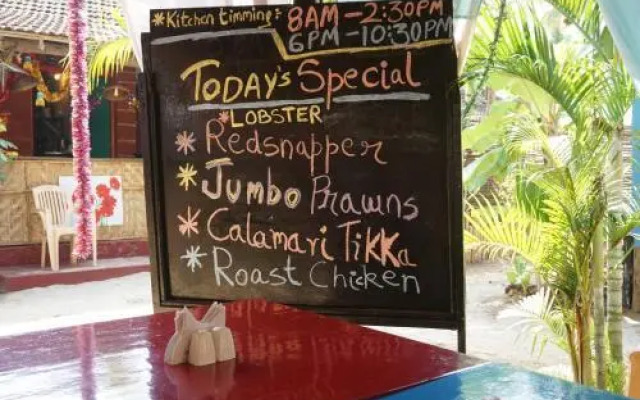 *Kitchen timming: 8AM-2:30PM
6PM-10:30PM
Today's Special
*LOBSTER
* Redsnapper
* Jumbo Prawns
* Calamari TikKa
* Roast Chicken